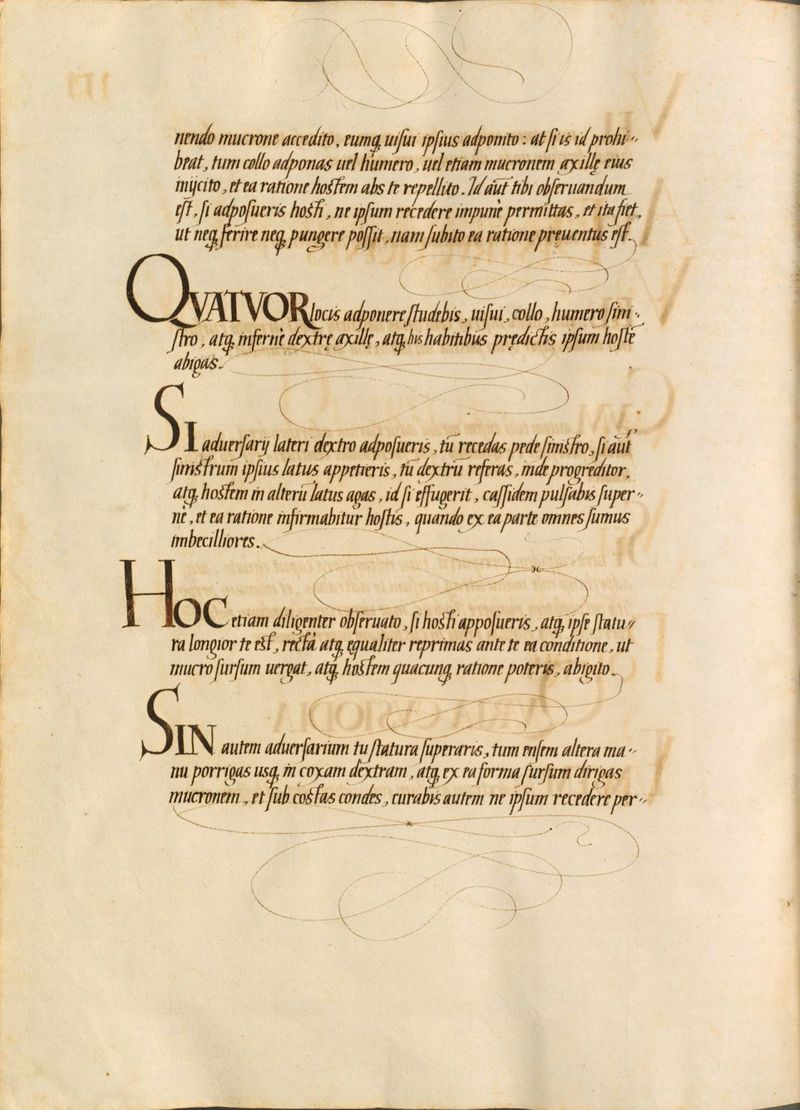 nendo mucrone accedito, eumq́ uisui ipsius adponito: at si is id prohi-
beat, tum collo adponas uel humero, uel etiam mucronem axillę eius
inijcito, et ea ratione hostem abs te repellito. Id aut̄ tibi obseruandum
est, si adposueris hosti, ne ipsum recedere impunè permittas, et ita fiet,
ut neq́ ferire neq́ pungere possit, nam subito ea ratione pręuentus est.
QVATVOR locis adponere studebis, uisui, collo, humero sini-
stro, atq́ infernè dextrę axillę, atq́ his habitibus prędictis ipsum hostē
abigas.
SI aduersarij lateri dextro adposueris, tū recedas pede sinistro, si aut̄
sinistrum ipsius latus appetieris, tū dextrū referas, inde progreditor,
atq́ hostem in alterū latus agas, id si effugerit, cassidem pulsabis super-
nè, et ea ratione infirmabitur hostis, quando ex ea parte omnes sumus
imbecilliores.
HOC etiam diligenter obseruato, si hosti apposueris, atq́ ipse statu-
ra longior te est, rectà atq́ ęqualiter reprimas ante te ea conditione, ut
mucro sursum uergat, atq́ hostem quacunq́ ratione poteris, abigito.
SIN autem aduersarium tu statura superaris, tum ensem altera ma-
nu porrigas usq́ in coxam dextram, atq́ ex ea forma sursum dirigas
mucronem, et sub costas condes, curabis autem ne ipsum recedere per-